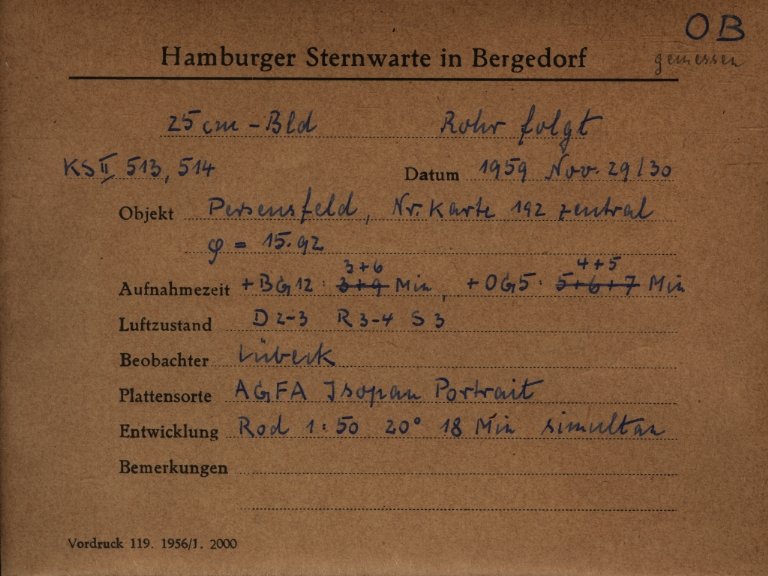 OB
gemessen
Hamburger Sternwarte in Bergedorf
25 cm - Bld Rohr folgt
KS II 513, 514 Datum 1959 Nov. 29/30
Objekt Persensfeld, Nr. Karte 192 zentral
φ = 15.92
3+6 4+5
Aufnahmezeit +BG12: 3+9 Min, +OG5: 5+6+7 Min
Luftzustand D 2-3 R 3-4 S 3
Beobachter Lübeck
Plattensorte AGFA Isopan Portrait
Entwicklung Rod 1:50 20° 18 Min simultan
Bemerkungen
Vordruck 119. 1956/1. 2000